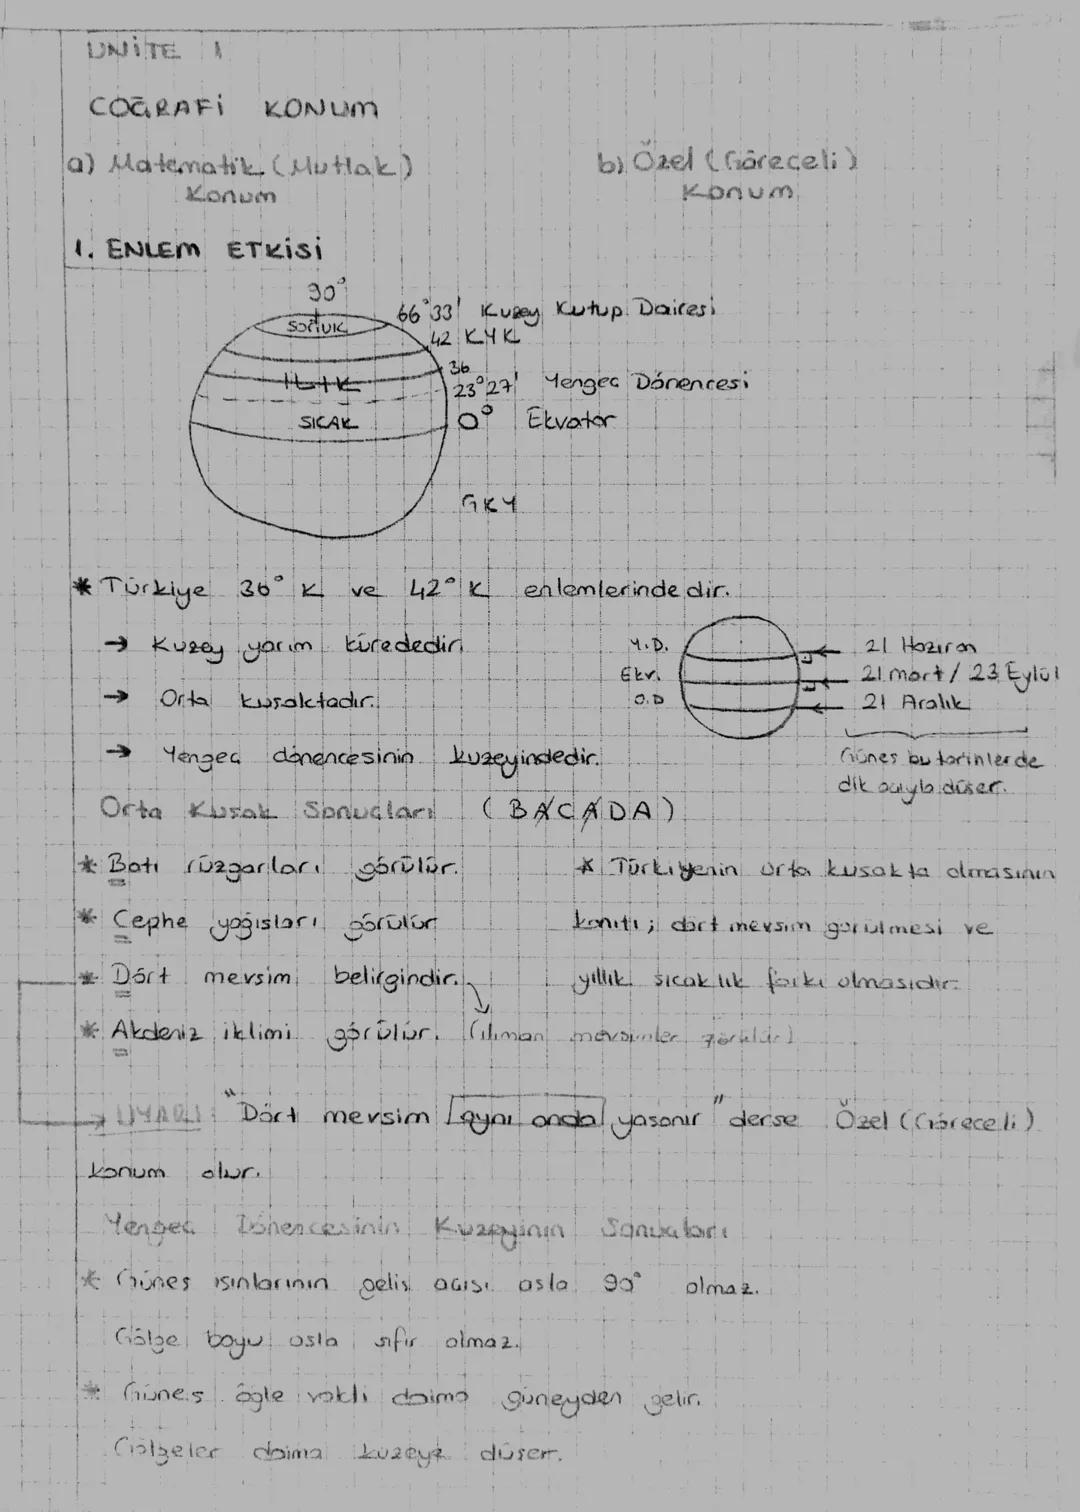 ÜNİTE 1
COĞRAFİ KONUM
a) Matematik (Mutlak) Konum
b) Özel (Göreceli) Konum
1. ENLEM ETKİSİ
90°
SOĞUK
66°33' Kuzey Kutup Dairesi
42 KYK
36
ILIK
23°27' Yengeç Dönencesi
SICAK
0° Ekvator
GKY
* Türkiye 36° K ve 42° K enlemlerindedir.
→ Kuzey yarım küredediri
→ Orta kuşaktadır.
→ Yengeç dönencesinin kuzeyindedir.
Y.D.
Ekv.
O.D
21 Haziran
21 mart / 23 Eylül
21 Aralık
Güneş bu tarihlerde
dik açıyla düşer.
Orta Kuşak Sonuçları (BACADA)
* Batı rüzgarları görülür.
* Cephe yağışları görülür
* Dört mevsim belirgindir.
* Akdeniz iklimi görülür. (ılıman mevsimler görülür)
* Türkiyenin orta kuşakta olmasının
kanıtı; dört mevsim görülmesi ve
yıllık sıcaklık farkı olmasıdır.
UYARI: "Dört mevsim aynı anda yaşanır" derse Özel (Göreceli)
konum olur.
Yengeç Dönencesinin Kuzeyinin Sonuçları
* Güneş ışınlarının geliş açısı asla 90° olmaz.
Gölge boyu asla sıfır olmaz.
* Güneş öğle vakti daima güneyden gelir.
Gölgeler daima kuzeye düşer.